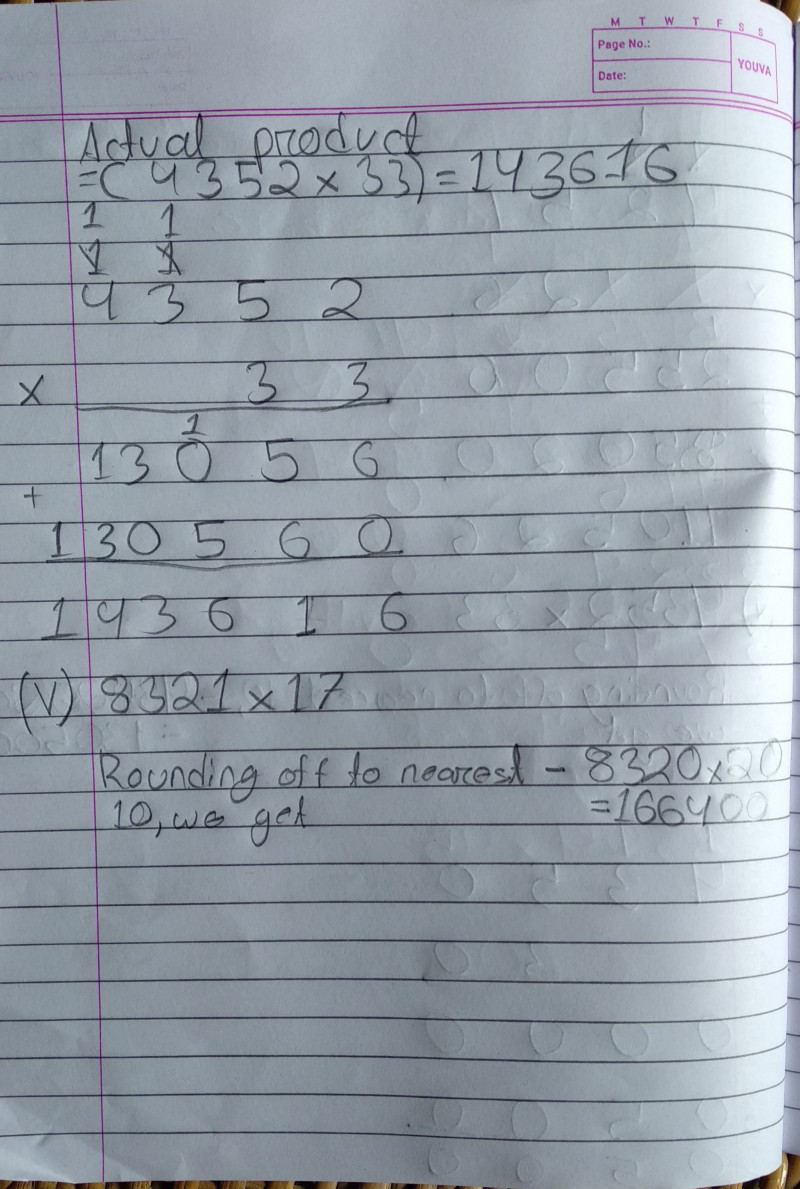 M T W T F S S
Page No.:
YOUVA
Date:
Actual product
=( 4 3 5 2 x 33) = 143616
1 1
1 1
4 3 5 2
x 3 3
1
13 0 5 6
+
1 30 5 6 0
1 43 6 1 6
(V) 8321 x 17
Rounding off to nearest - 8320 x 20
10, we get =166400